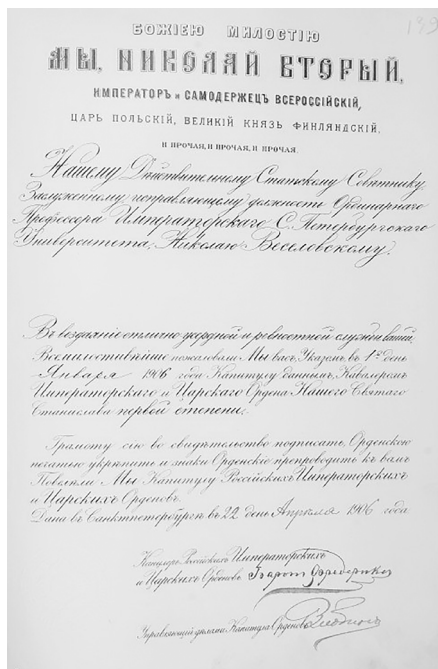 139
БОЖІЕЮ МИЛОСТІЮ
МЫ, НИКОЛАЙ ВТОРЫЙ,
ИМПЕРАТОРЪ и САМОДЕРЖЕЦЪ ВСЕРОССІЙСКІЙ,
ЦАРЬ ПОЛЬСКІЙ, ВЕЛИКІЙ КНЯЗЬ ФИНЛЯНДСКІЙ,
И ПРОЧАЯ, И ПРОЧАЯ, И ПРОЧАЯ.
Нашему Дѣйствительному Статскому Совѣтнику,
Заслуженному исправляющему должность Ординарнаго
Профессора Императорскаго С. Петербургскаго
Университета, Николаю Веселовскому.
Въ воздаяніе отлично усердной и ревностной службы вашей,
Всемилостивѣйше пожаловали Мы васъ, Указомъ въ 1й день
Января 1906 года Капитулу даннымъ, Кавалеромъ
Императорскаго и Царскаго Ордена Нашего Святаго
Станислава первой степени.
Грамоту сію во свидѣтельство подписать, Орденскою
печатью укрѣпить и знаки Орденскіе препроводить къ вамъ
Повелѣли Мы Капитулу Россійскихъ Императорскихъ
и Царскихъ Орденовъ.
Дана въ Санктпетербургѣ въ 22 день Апрѣля 1906 года.
Канцлеръ Россійскихъ Императорскихъ
и Царскихъ Орденовъ Баронъ Фредериксъ
Управляющій дѣлами Капитула Орденовъ